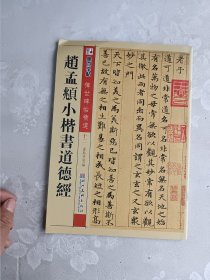 墨点字帖
傳世碑帖精選
趙孟頫小楷書道德經
老子
道可道非常道名可名非常名無名天地之始
有名萬物之母常無欲以觀其妙常有欲以觀
其徼此兩者同出而異名同謂之玄玄之又玄衆
妙之門
天下皆知美之為美斯惡已皆知善之為善斯不
善已故有無相生難易相成長短相形